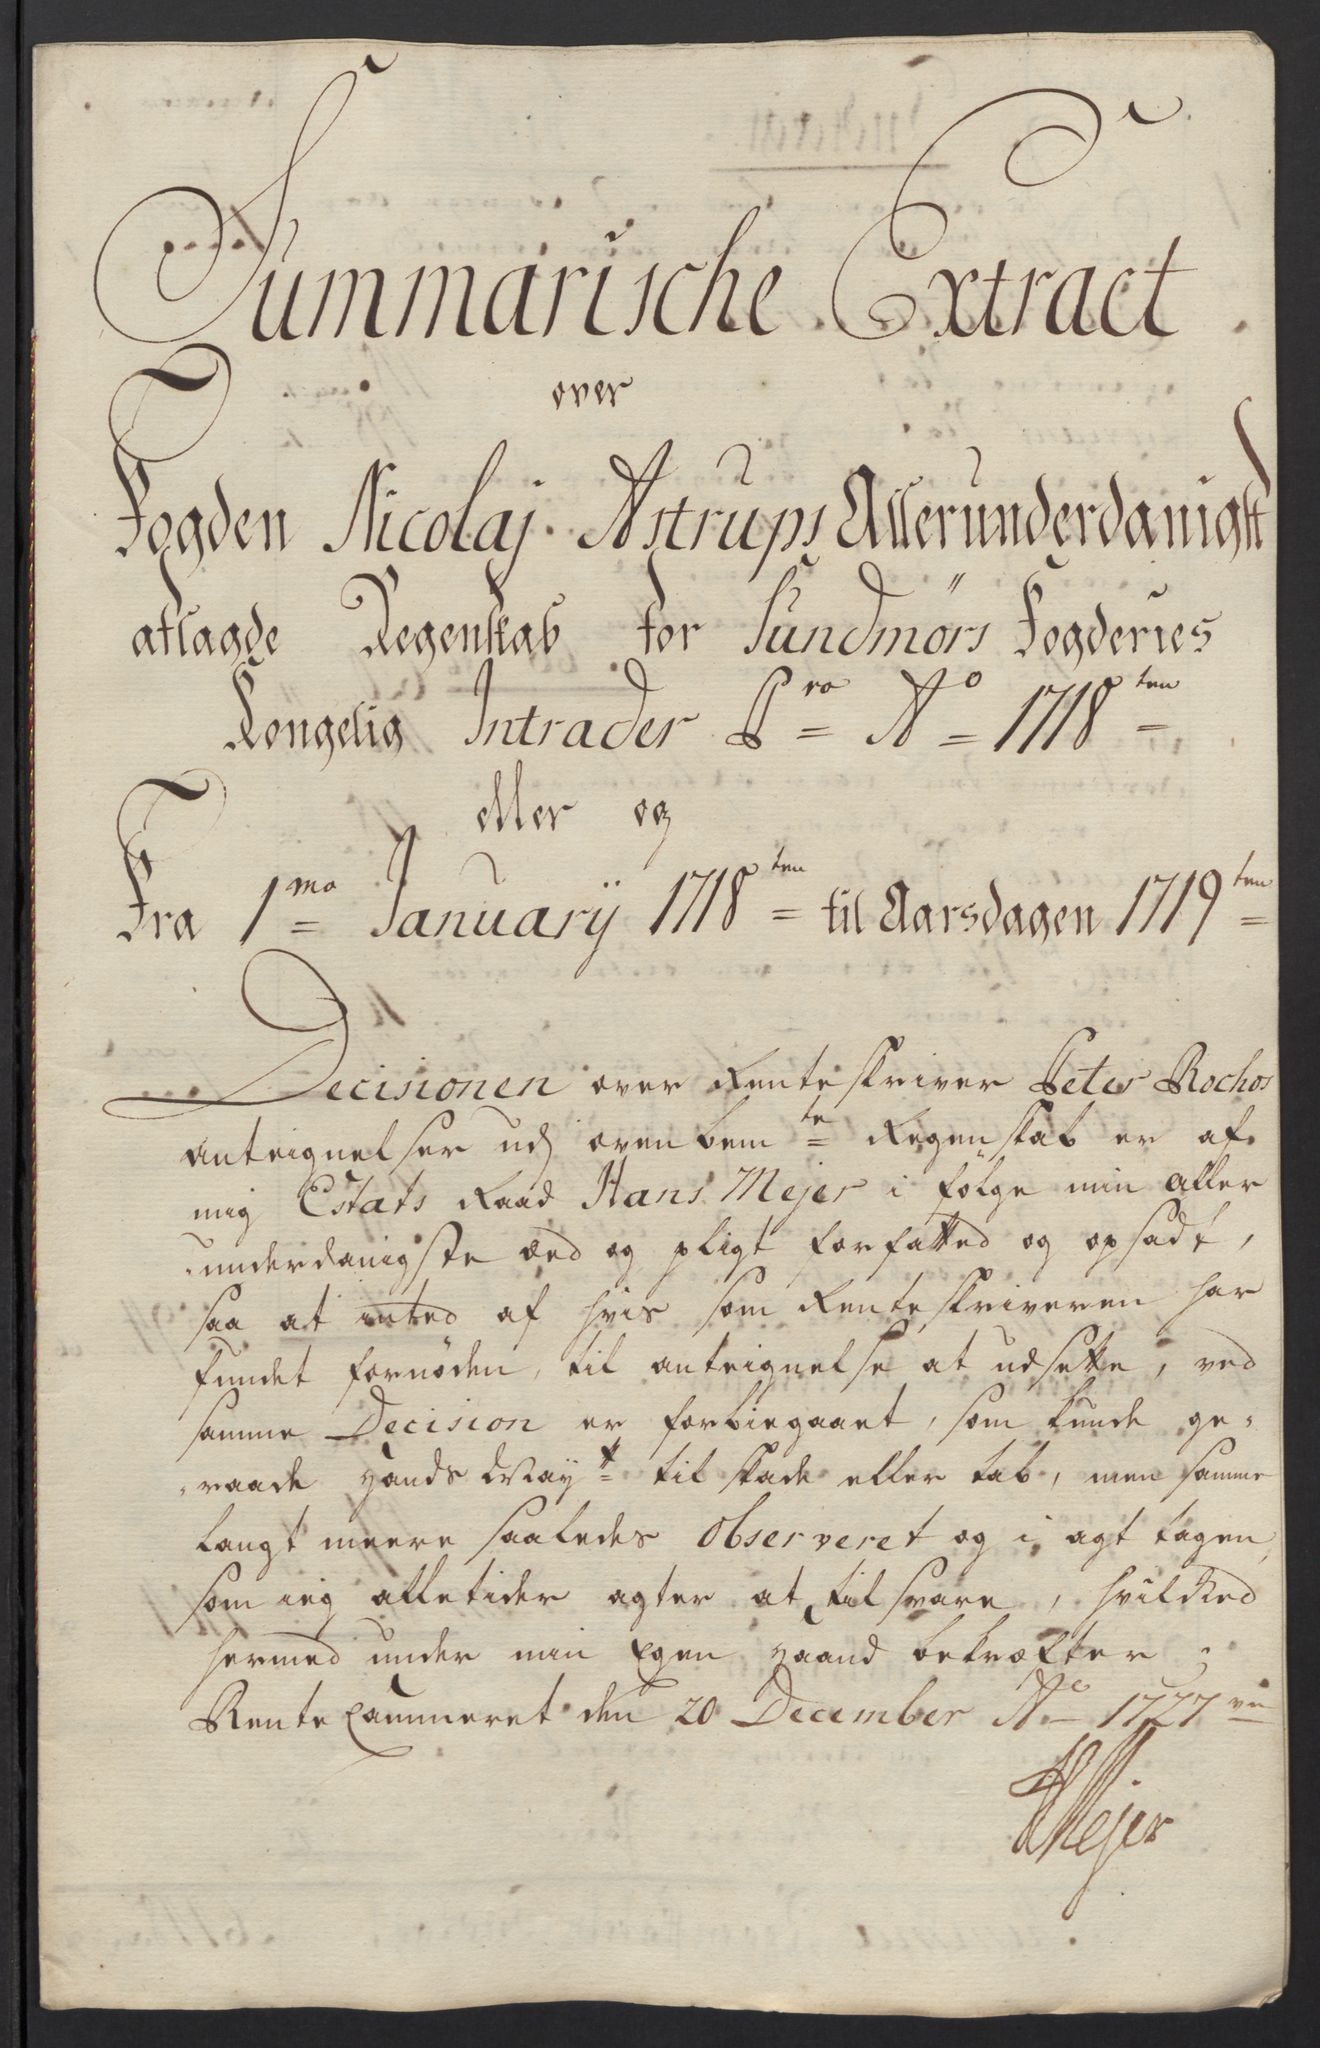 Summarische Extract
over
Fogden Nicolaj Astrups Allerunderdanigst
aflagde Regenskab for Sundmörs Fogderies
Kongelig Intrader P ro A o 1718 ten
eller og
Fra 1 mo Januarÿ 1718 ten til Aarsdagen 1719 ten
Decisionen over Renteskriver Peter Rochos
Anteignelser udj ovenbem te Regenskab er af
mig Estats Raad Hans Mejer i fölge min aller
underdanigste Eed og pligt forfatted og opsadt,
saa at inted af hvis som Renteskriveren har
fundet fornöden, til anteignelse at udsette, ved
samme Decision er forbiegaaet, som kunde ge-
raade Hands Maÿ t til skade eller tab, men samme
langt meere saaledes Observeret og i agt tagen,
som ieg alletider agter at tilsvare, hvilcked
hermed under min Egen Haand bekræfter
Rente Cammeret den 20 December A o 1727 ve
HMejer